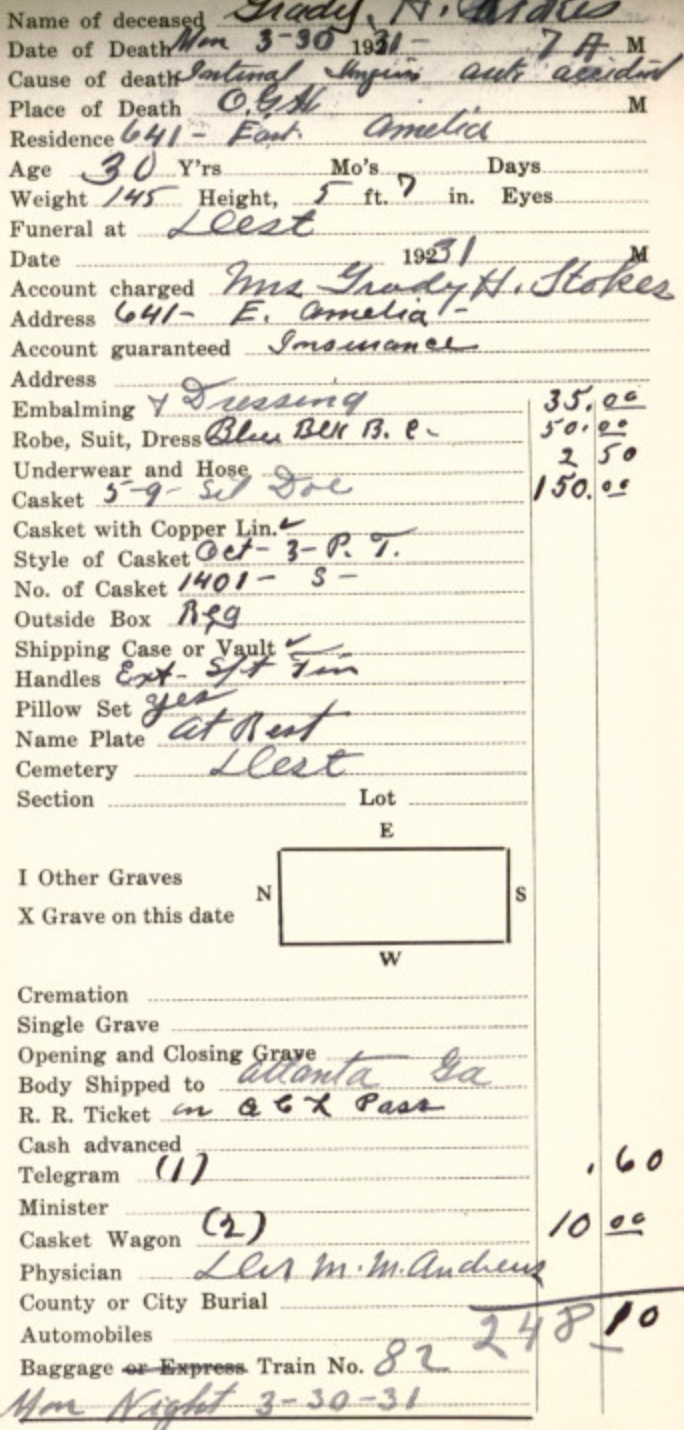 Name of deceased Grady H. Stokes
Date of Death Mon 3-30 1931- 7 A M
Cause of death Internal Injuries auto accident
Place of Death O.G.H. M
Residence 641- East. Amelia
Age 30 Y'rs Mo's Days
Weight 145 Height, 5 ft. 7 in. Eyes
Funeral at Dest
Date 19231 M
Account charged Mrs Grady H. Stokes
Address 641- E. Amelia-
Account guaranteed Insurance
Address
Embalming & Dressing 35.00
Robe, Suit, Dress Blue Blk B. C- 50.00
Underwear and Hose 2 50
Casket 5-9- Sil Doe 150.00
Casket with Copper Lin. ✓
Style of Casket Oct- 3- P. T.
No. of Casket 1401- S-
Outside Box Reg
Shipping Case or Vault ✓
Handles Ext- S/t Tin
Pillow Set yes
Name Plate At Rest
Cemetery Dest
Section Lot
E
I Other Graves
N S
X Grave on this date
W
Cremation
Single Grave
Opening and Closing Grave
Body Shipped to Atlanta Ga
R. R. Ticket on A C L Pass
Cash advanced
Telegram (1) .60
Minister
Casket Wagon (2) 10 00
Physician M.M. Andrews
County or City Burial
Automobiles 248 10
Baggage or Express Train No. 82
Mon Night 3-30-31